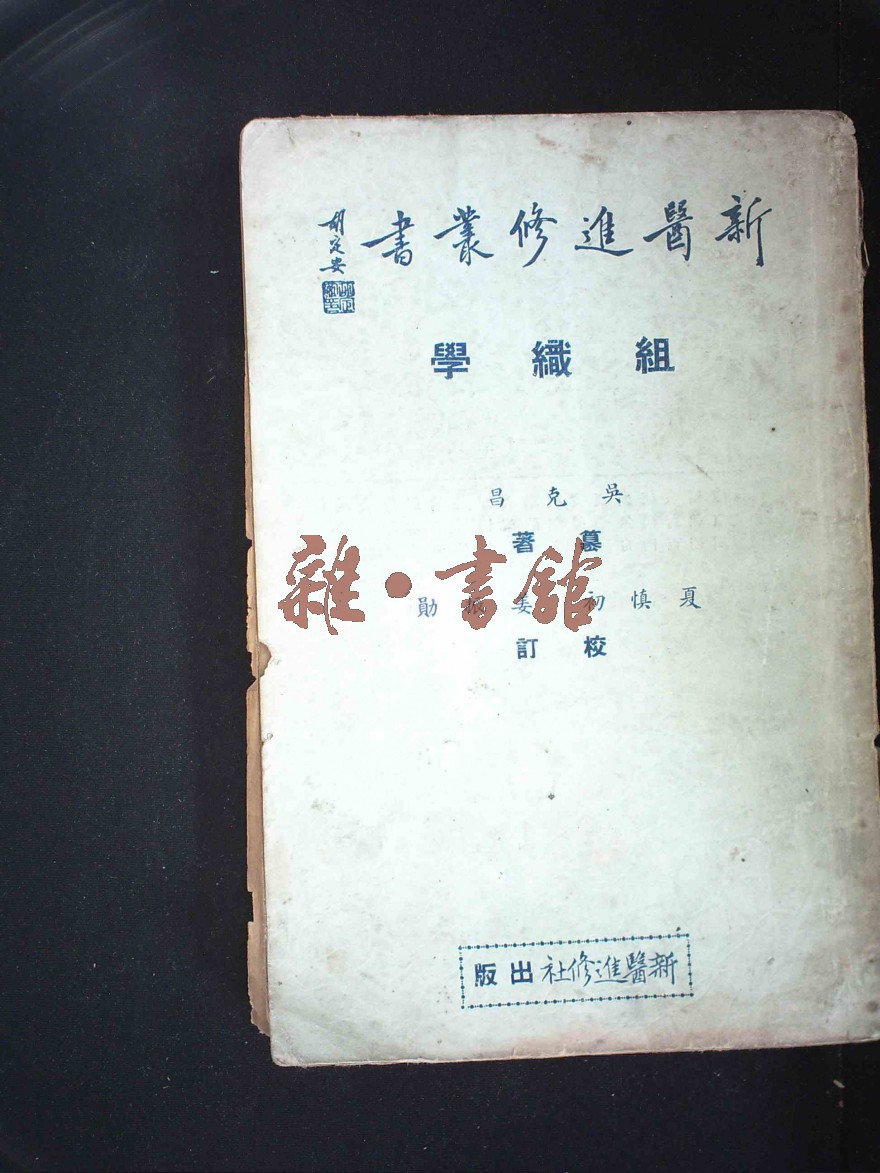 新醫進修叢書
胡定安
組織學
吳克昌
纂著
雜·書館
夏慎初 姜振勛
校訂
新醫進修社出版